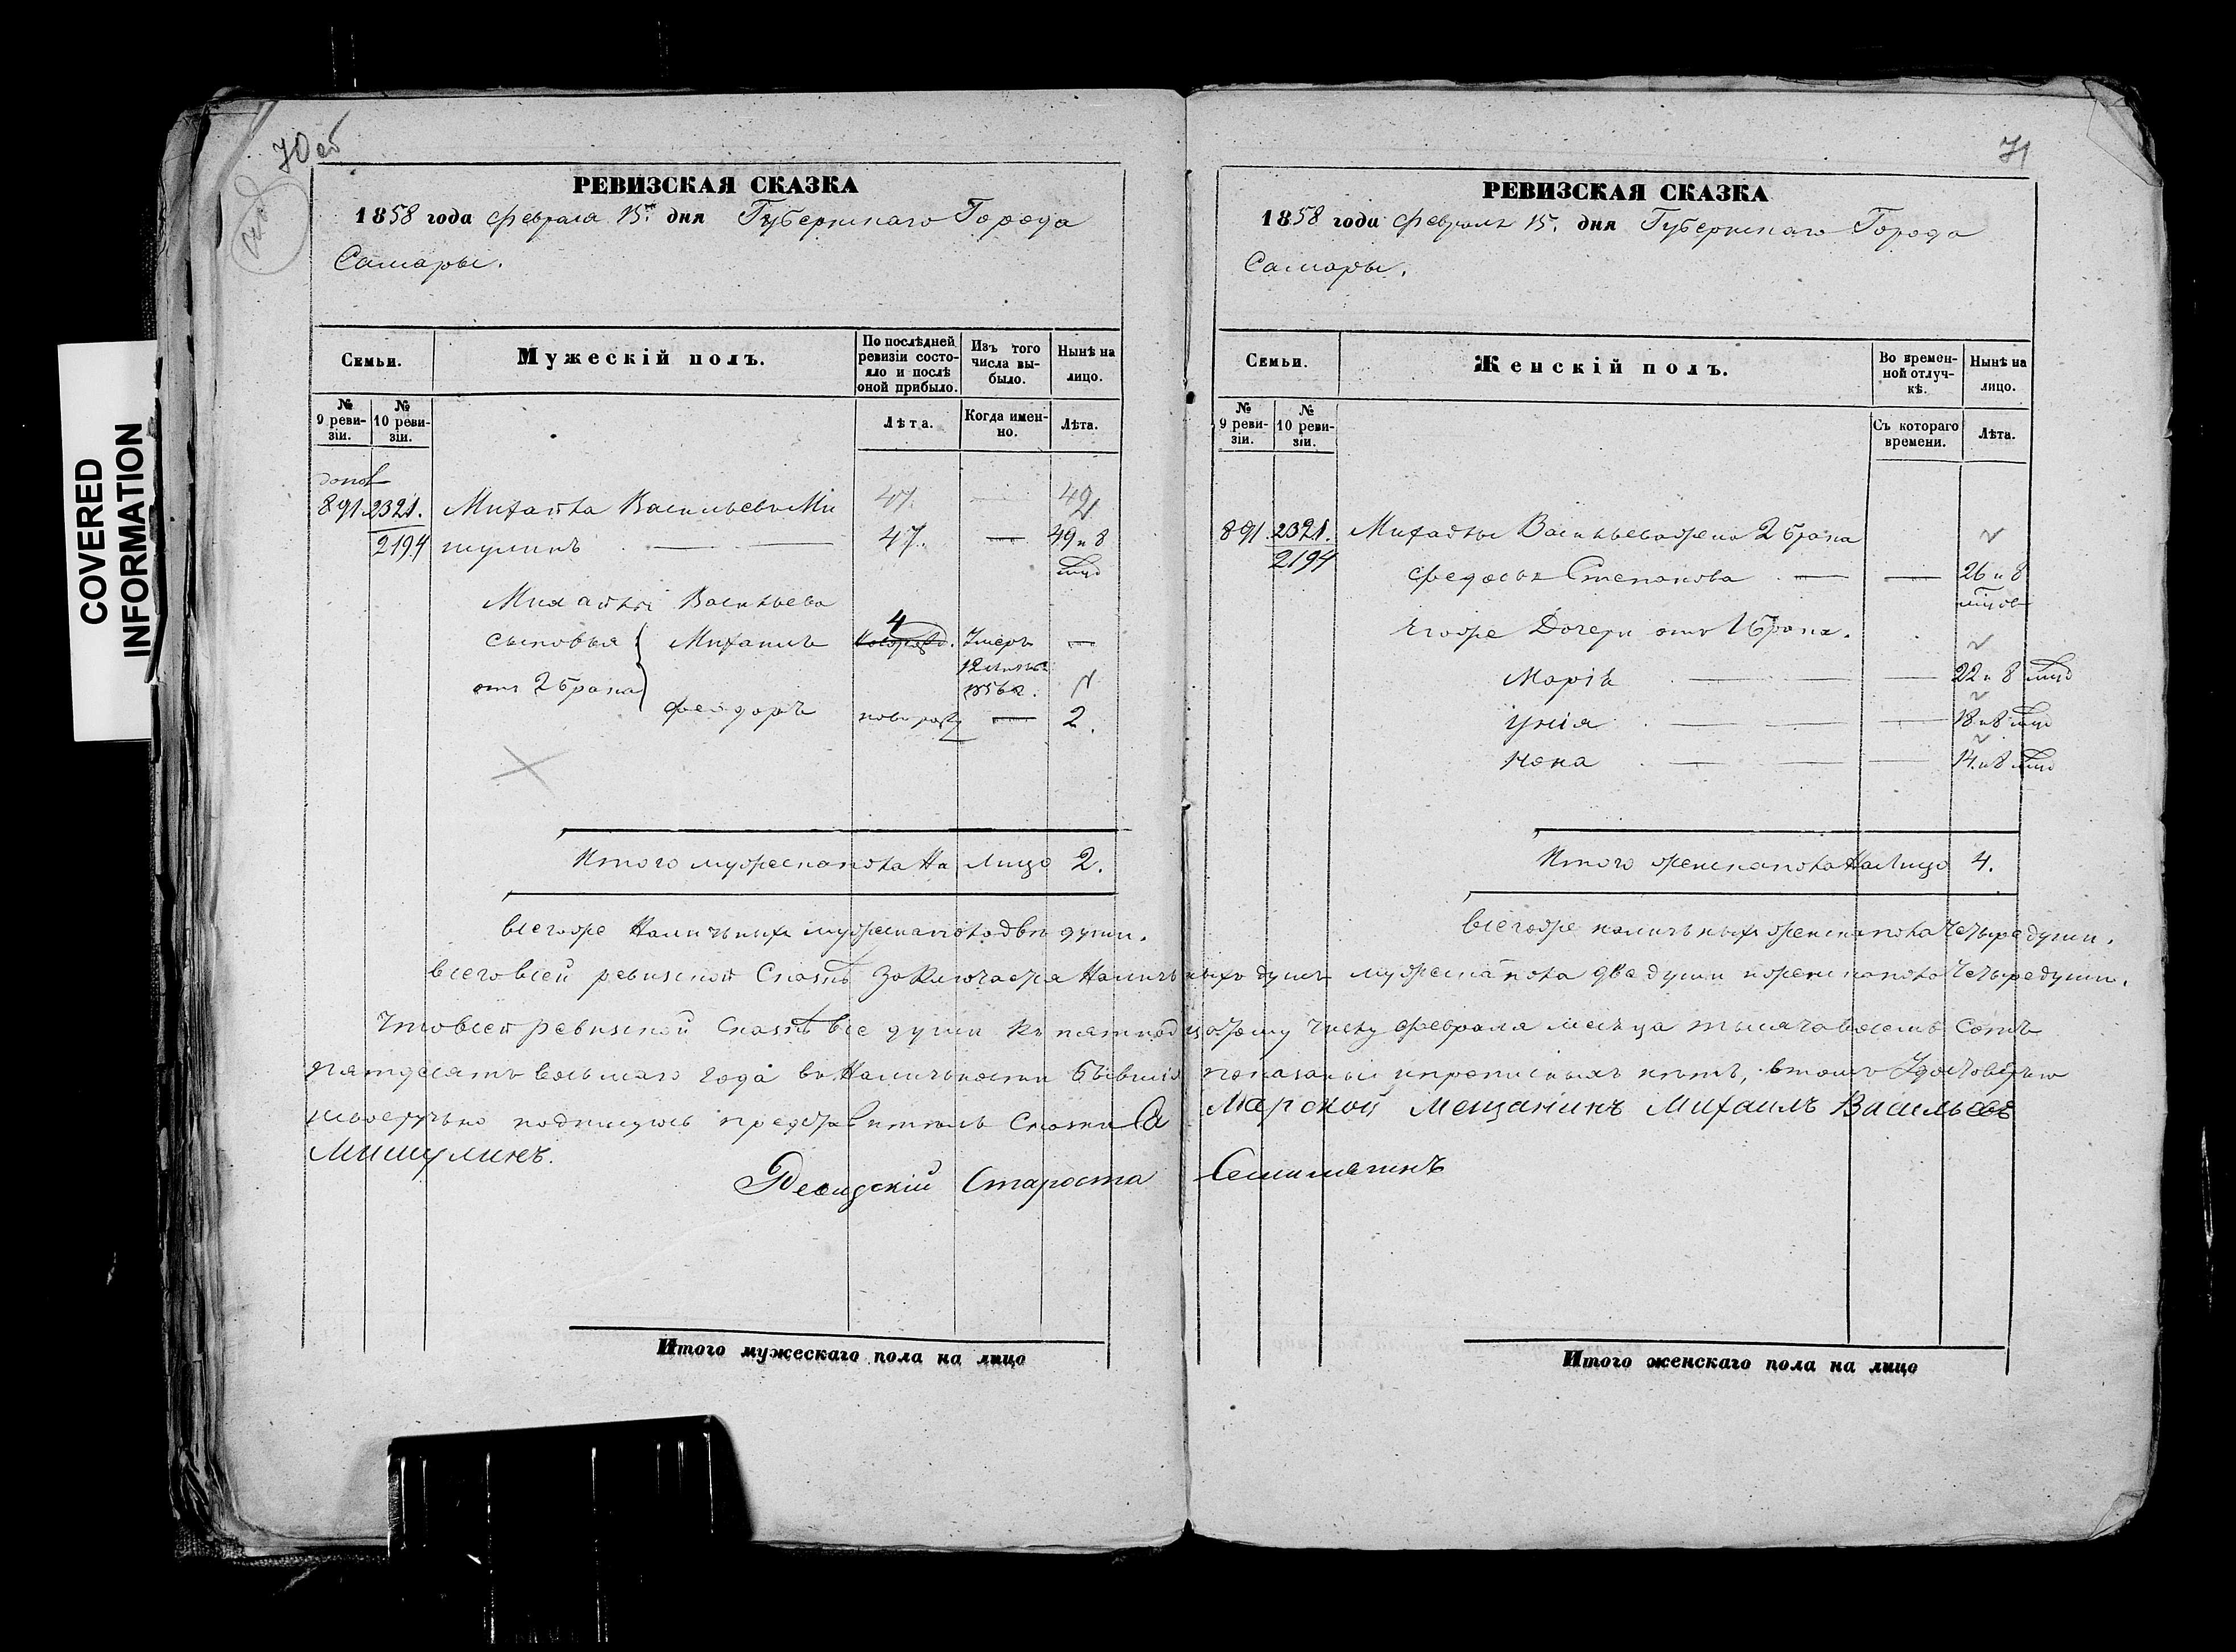 COVERED
INFORMATION
70 об
РЕВИЗСКАЯ СКАЗКА
1858 года февраля 15го дня Губернскаго Города
Самары.
Семьи.
Мужескій полъ.
По послѣдней ревизіи состояло и послѣ оной прибыло.
Изъ того числа выбыло.
Нынѣ на лицо.
№ 9 ревизіи.
№ 10 ревизіи.
Лѣта.
Когда именно.
Лѣта.
допол
891 2321. Михайла Васильевъ Ми 47. 49
2194 шулинъ 47. 49 и 8
Михайлы Васильева
сыновья Михаилъ 4 Умеръ
12
1856 г.
отъ 2 брака
Феодоръ новорожд 2.
Итого мужеска пола На Лицо 2.
всегоже Наличныхъ мужеска пола двѣ души.
71
РЕВИЗСКАЯ СКАЗКА
1858 года февраля 15. дня Губернскаго Города
Самары.
Семьи.
Женскій полъ.
Во временной отлучкѣ.
Нынѣ на лицо.
№ 9 ревизіи.
№ 10 ревизіи.
Съ котораго времени.
Лѣта.
891. 2321. Михайлы Васильева жена 2 брака
2194 Федосья Степанова 26 и 8
Егоже Дочери отъ 1 брака.
Марія 22 и 8
18 и 8
14. и 8
Итого женска пола На Лицо 4.
всегоже наличныхъ женска пола Четыре души.
всего всей ревизской Сказкѣ Заключается Наличныхъ душъ мужеска пола две души и женска пола Четыре души.
Что въ сей ревизской Сказкѣ все души къ пятнадцатому Числу февраля месяца тысяча восемь Сотъ
пятдесятъ восьмаго года въ Наличности бывшія показаны и прописныхъ нетъ, в томъ Удостоверяю
подпишусь Сказки Са марской Мещанинъ Михаилъ Васильевъ
Мишулинъ.
Ревизскій Староста
Итого мужескаго пола на лицо
Итого женскаго пола на лицо